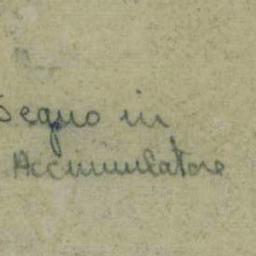 Segno in
Accumulatore